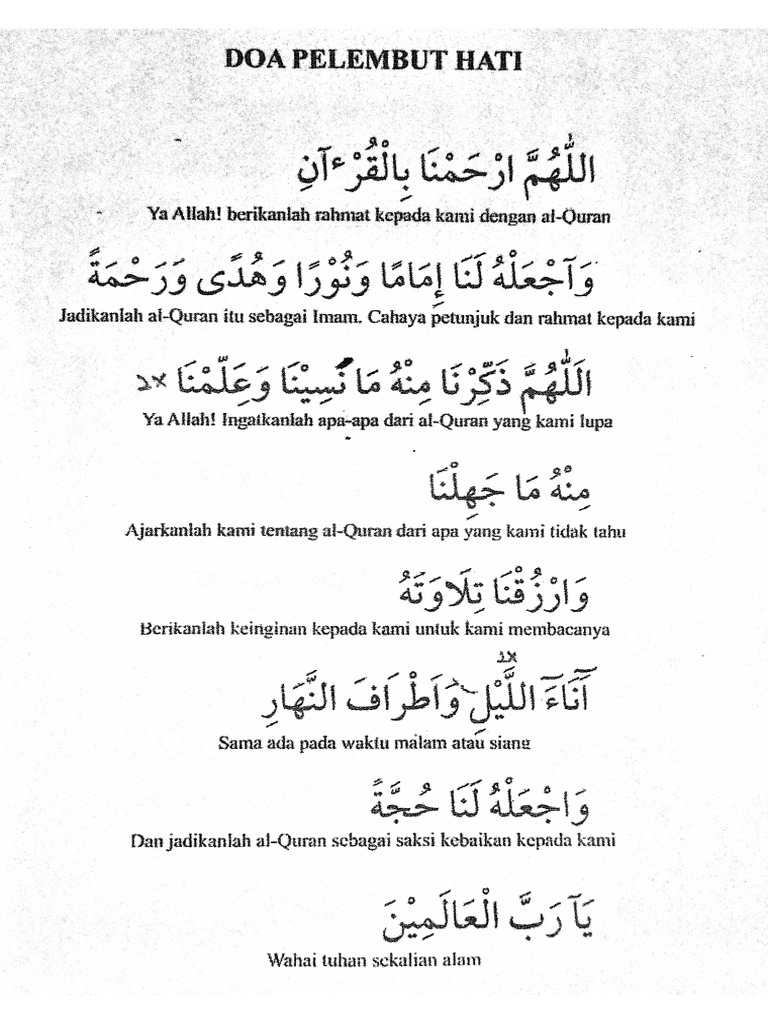 DOA PELEMBUT HATI
اللّٰهُمَّ ارْحَمْنَا بِالْقُرْءآنِ
Ya Allah! berikanlah rahmat kepada kami dengan al-Quran
وَآجْعَلْهُ لَنَا إِمَامًا وَنُوْرًا وَهُدًى وَرَحْمَةً
Jadikanlah al-Quran itu sebagai Imam. Cahaya petunjuk dan rahmat kepada kami
اَللّٰهُمَّ ذَكِّرْنَا مِنْهُ مَا نَسِيْنَا وَعَلِّمْنَا
Ya Allah! Ingatkanlah apa-apa dari al-Quran yang kami lupa
مِنْهُ مَا جَهِلْنَا
Ajarkanlah kami tentang al-Quran dari apa yang kami tidak tahu
وَارْزُقْنَا تِلَاوَتَهُ
Berikanlah keinginan kepada kami untuk kami membacanya
آنَاءَ اللَّيْلِ وَاَطْرَافَ النَّهَارِ
Sama ada pada waktu malam atau siang
وَاجْعَلْهُ لَنَا حُجَّةً
Dan jadikanlah al-Quran sebagai saksi kebaikan kepada kami
يَآ رَبَّ الْعَالَمِيْنَ
Wahai tuhan sekalian alam